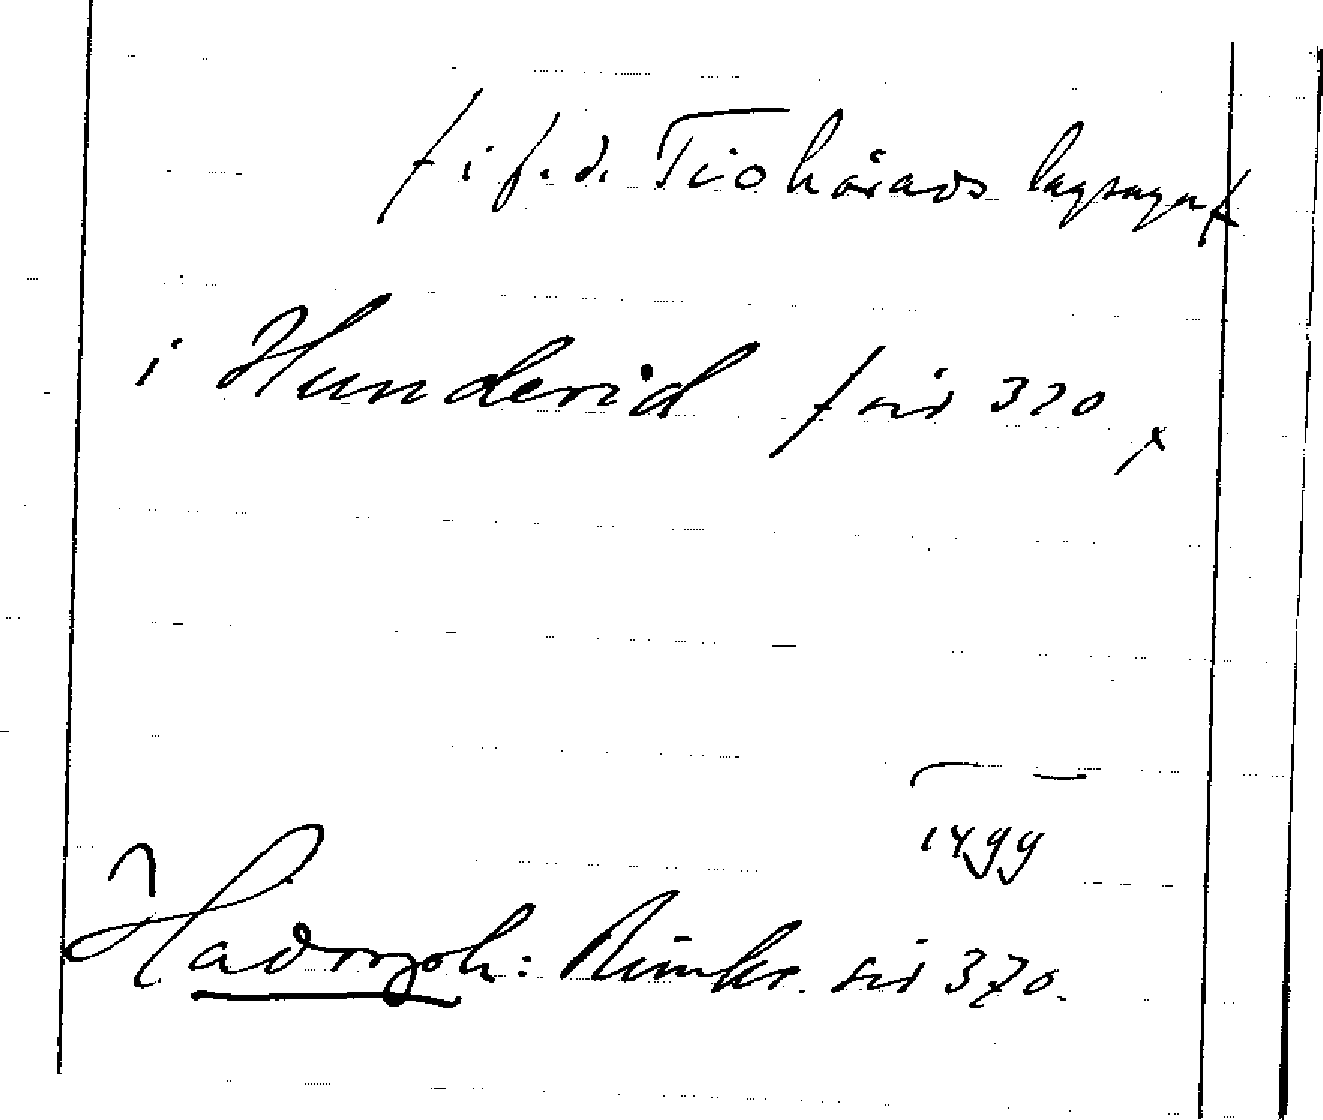 / i f. d. Tiohärads lagsaga /
i Hunderid / sid 370 /
1499
Hadorph: Rimkr. sid 370.